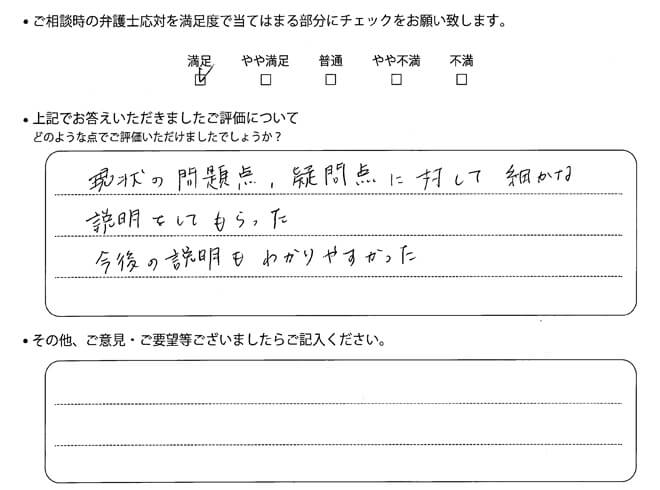 • ご相談時の弁護士応対を満足度で当てはまる部分にチェックをお願い致します。
満足 やや満足 普通 やや不満 不満
☑ □ □ □ □
• 上記でお答えいただきましたご評価について
どのような点でご評価いただけましたでしょうか？
現状の問題点，疑問点に対して細かな
説明をしてもらった
今後の説明もわかりやすかった
• その他、ご意見・ご要望等ございましたらご記入ください。